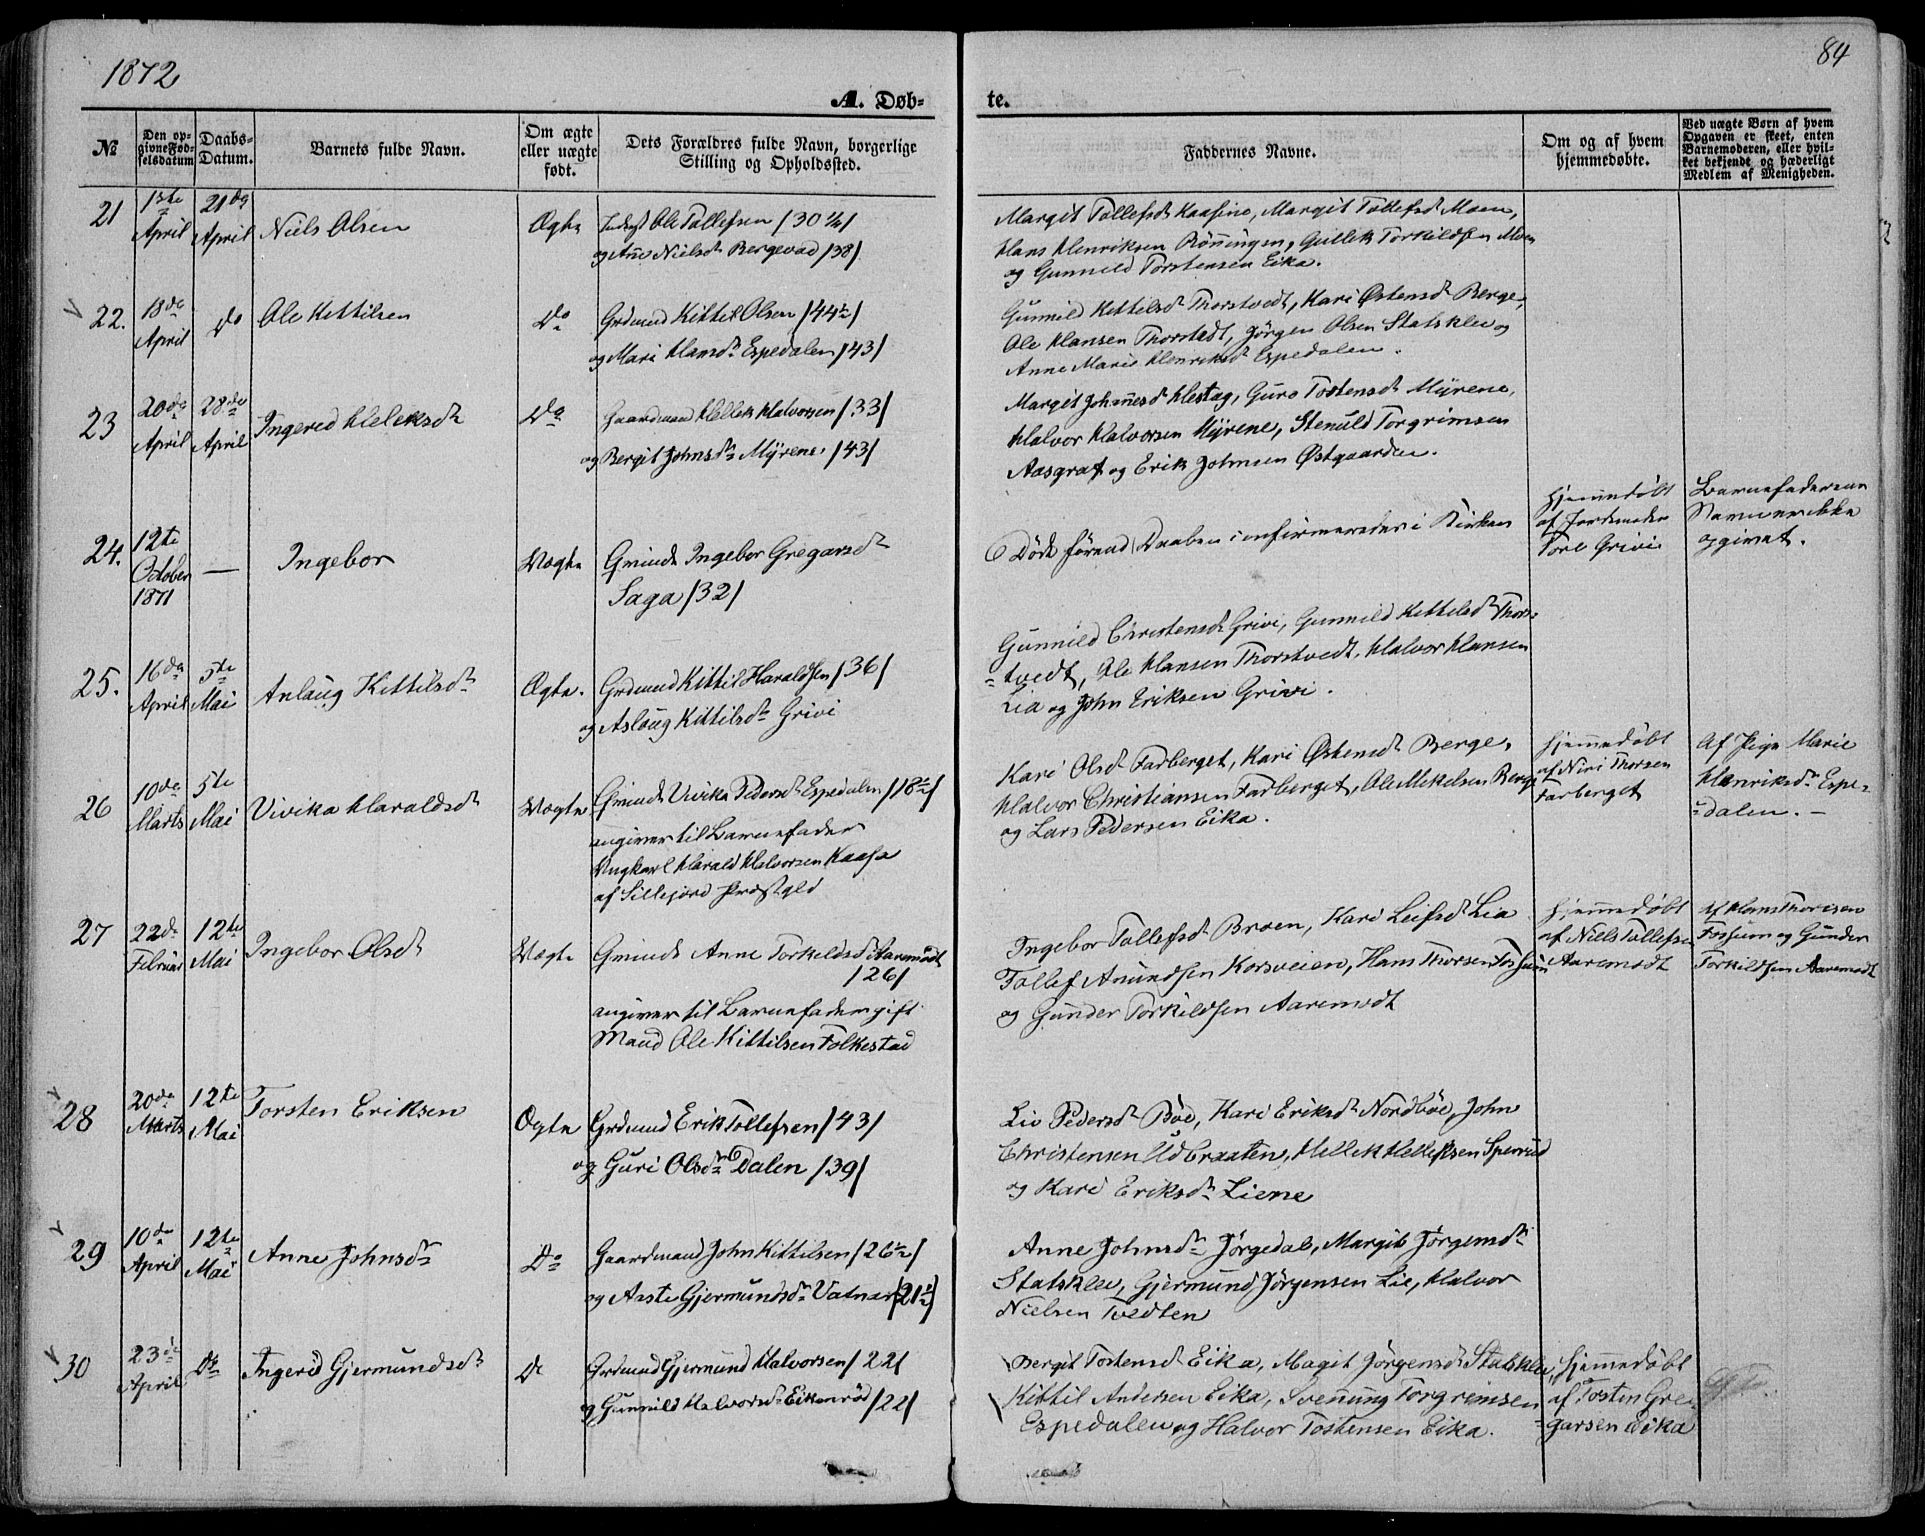 1872
84
A. Døb-
te.
№
Den op-
givne Fød-
selsdatum
Daabs-
Datum.
Barnets fulde Navn.
Om ægte
eller uægte
født.
Dets Forældres fulde Navn, borgerlige
Stilling og Opholdssted.
Faddernes Navne.
Om og af hvem
hjemmedøbte.
Ved uægte Børn af hvem
Opgaven er skeet, enten
Barnemoderen, eller hvil-
ket bekjendt og hæderligt
Medlem af Menigheden.
21
April
21de
April
Niels Olsen
Ægte
Ole Tollefsen /30 ½/
og Ane Nielsdr Bergevad /38/
Margit Tollefsdr Kaasine, Margit Tollefsdr Moen,
Hans Henriksen Rönningen, Gullek Torkildsen Moen
og Gunnild Torstensen Eika.
22.
18de
April
do
Ole Kittilsen
Do
Grdmand Kittil Olsen /44½/
og Mari Hansdr Espedalen /43/
Gunnild Kittilsdr Thorstvedt, Kari Østensdr Berge,
Ole Hansen Thorstedt, Jörgen Olsen Statsklev og
Anne Marie Henriksdr Espedalen.
23
20de
April
28de
April
Ingered Heleksdr
Do
Gaardmand Hellek Halvorsen /33/
og Bergit Johnsdr Mÿrene. /43/
Margit Johannesdr Hestag, Guro Tostensdr Mÿrene,
Halvor Halvorsen Mÿrene, Stenuld Torgrimsen
Aasgraf og Erik Johnsen Østgaarden.
24.
12te
October
1871
—
Ingebor
Uægte
Qvinde Ingebor Gregarsdr
Saga /32/
Döde förend Daaben confirmeredes i Kirken
Hjemmedöbt
af Jordemoder
Tore Grivi
Barnefaderens
Navn er ikke
opgivet.
25.
16de
April
5te
Mai
Anlaug Kittilsdr
Ægte.
Grdmand Kittil Haraldsen /36/
og Aslaug Kittilsdr Grivi
Gunnild Christensdr Grivi, Gunnild Kittelsdr Thors-
tvedt, Ole Hansen Thorstvedt, Halvor Hansen
Lia og John Eriksen Grivi.
26
10de
Marts
5te
Mai
Vivika Haraldsdr
Uægte
Qvinde Vivika Pedersdr Espedalen /18½/
angiver til Barnefader
Ungkarl Harald Halvorsen Kaasa
af Sillejord Præstgld
Kari Olsdr Farberget, Kari Østensdr Berge,
Halvor Christiansen Farberget, Ole Mikelsen Berge
og Lars Pedersen Eika.
Hjemmedöbt
af Niri Thorsen
Farberget
Af Pige Marie
Henriksdr Espe-
dalen. —
27
22de
Februar
12te
Mai
Ingebor Olsdr
Uægte
Qvinde Anne Torkeldsdr Aaremodt
/26/
angiver til Barnefader gift
Mand Ole Kittilsen Folkestad
Ingebor Tollefsdr Broen, Kari Leifsdr Lia
Tollef Anundsen Korsveien, Hans Thorsen Fossum
og Gunder Torkildsen Aaremodt
Hjemmedöbt
af Niels Tollefsen
Aaremodt
Af Hans Thoresen
Fossum og Gunder
Torkildsen Aaremodt
28
20de
Marts
12te
Mai
Torsten Eriksen
Ægte
Grdmand Erik Tollefsen /43/
og Guri Olsdr Dalen /39/
Liv Pedersdr Böe, Kari Eriksdr Nordböe, John
Christensen Udbraaten, Hellek Helleksen Sperrud
og Kari Eriksdr Liene
29
10de
April
12te
Mai
Anne Johnsdr
Do
Gaardmand John Kittilsen /26½/
og Aaste Gjermundsdr Vatnar /21½/
Anne Johnsdr Jörgedal, Margit Jörgensdr
Statsklev, Gjermund Jörgensen Lie, Halvor
Nielsen Tvedten
30
23de
April
Do
Ingerid Gjermundsdr
Do
Grdmand Gjermund Halvorsen /22/
og Gunnild Halvorsdr Eikenröd /22/
Bergit Tostensdr Eika, Magit Jörgensdr Statsklev,
Kittil Andersen Eika, Svenung Torgrimsen
Espedalen og Halvor Tostensen Eika.
Hjemmedöbt
af Tosten Gre-
garsen Eika